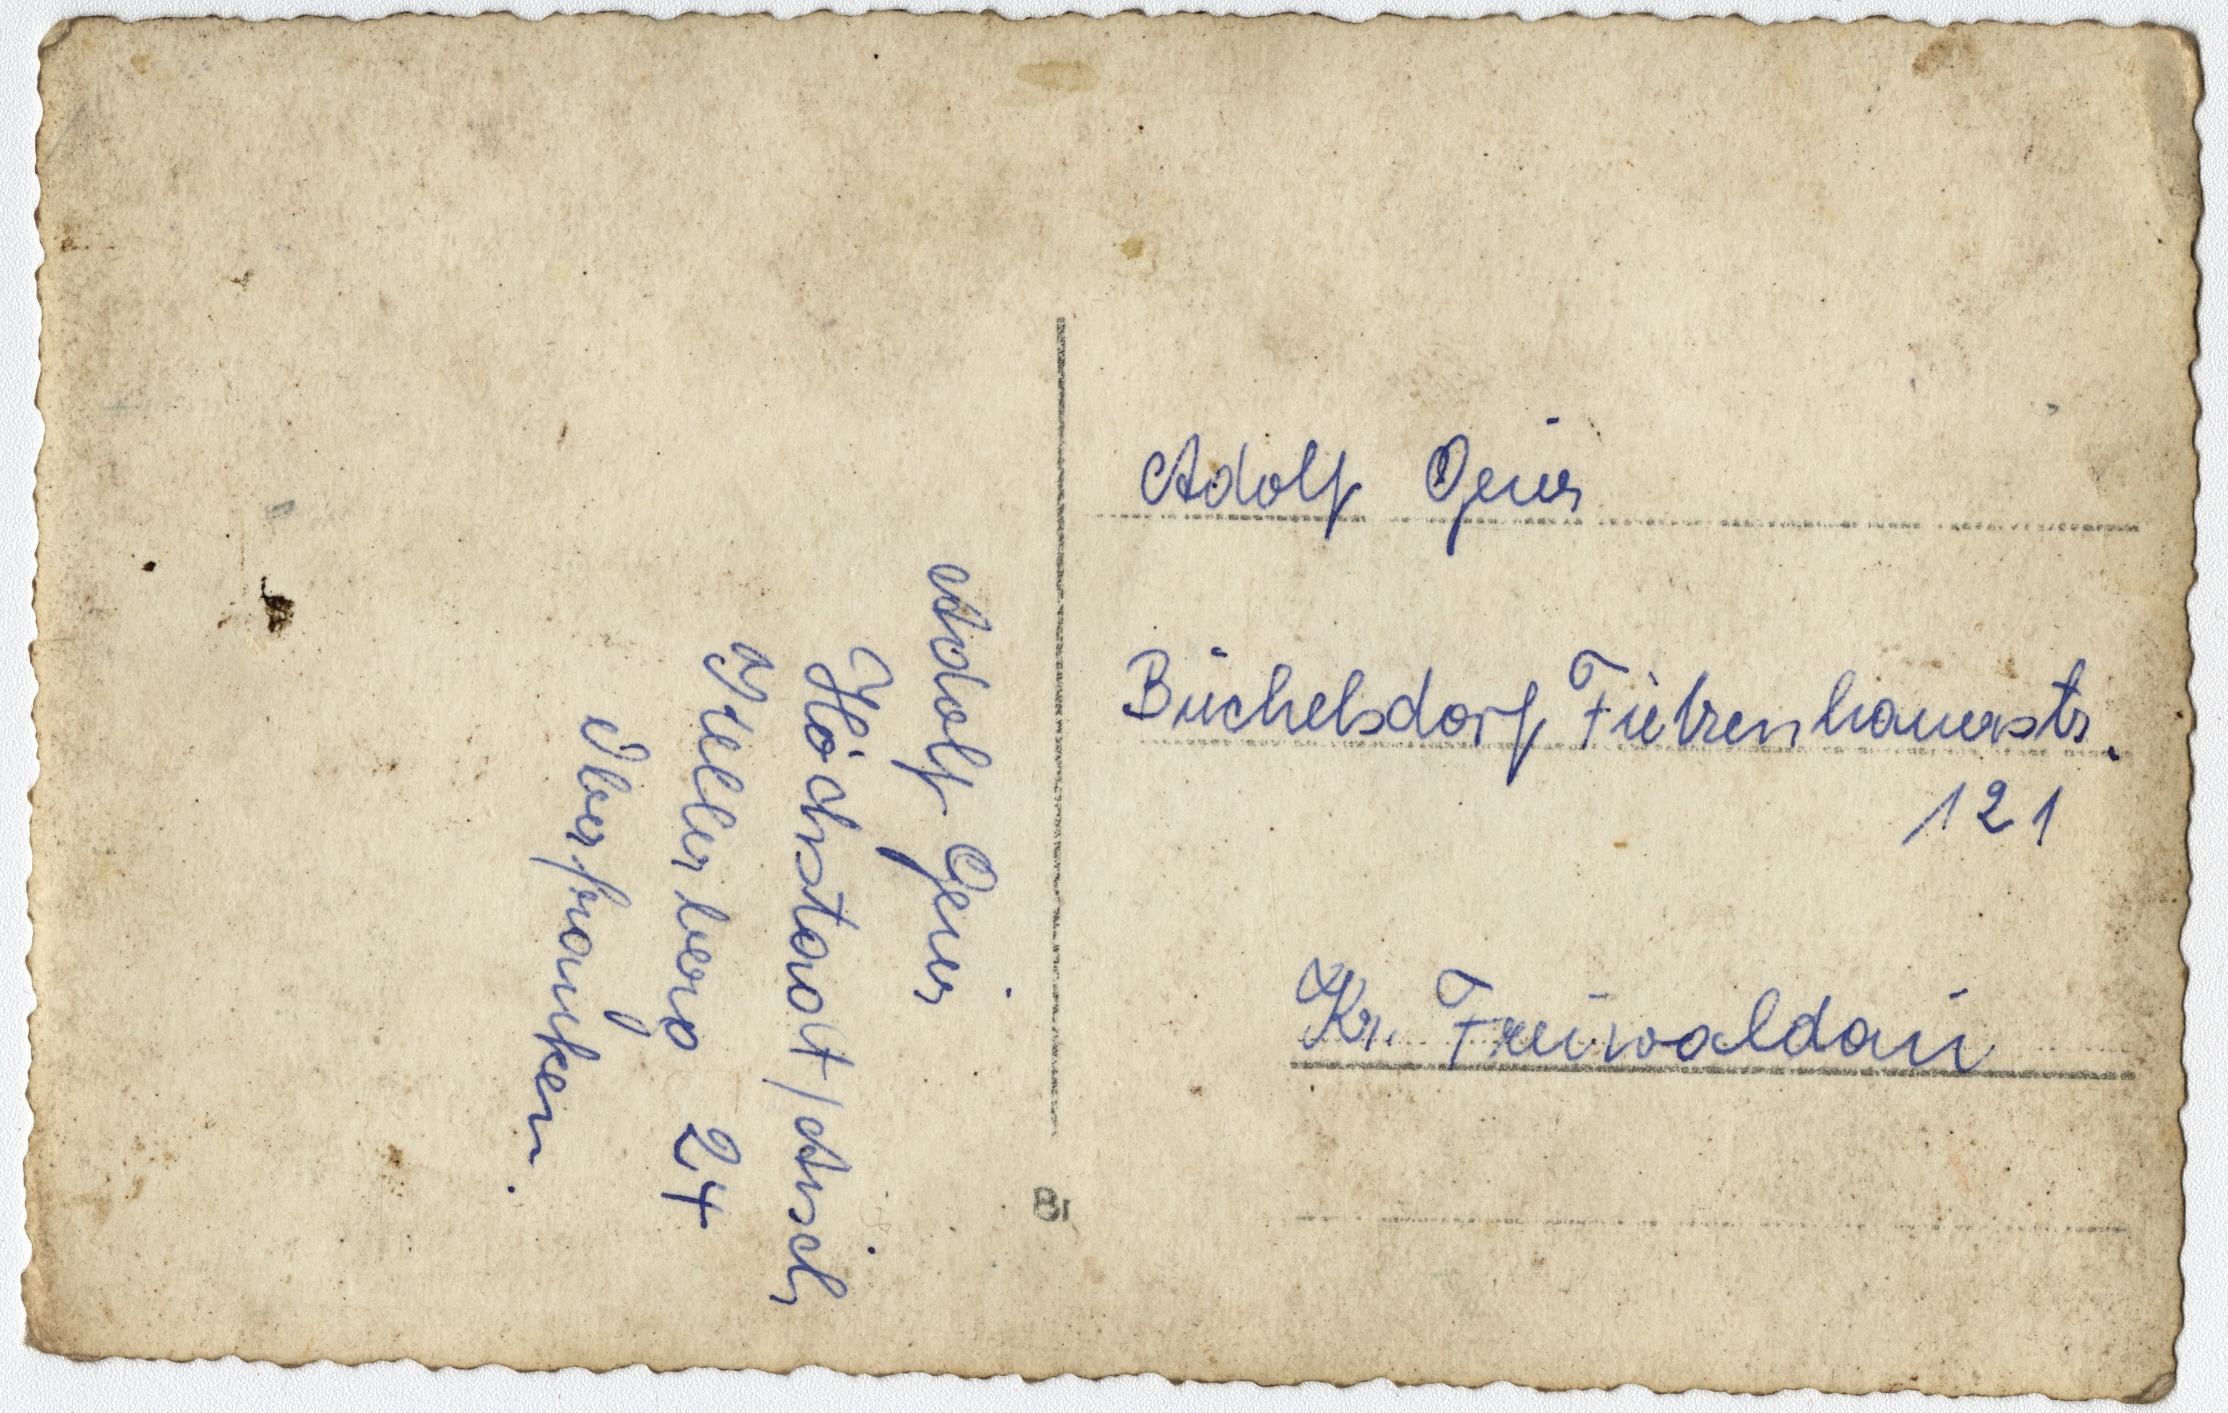 Adolf Geier
Höchstadt/Aisch
Kellerberg 24
Oberfranken.
Adolf Geier
Buchelsdorf Fietzenhauerstr.
121
Kr. Freiwaldau
Br